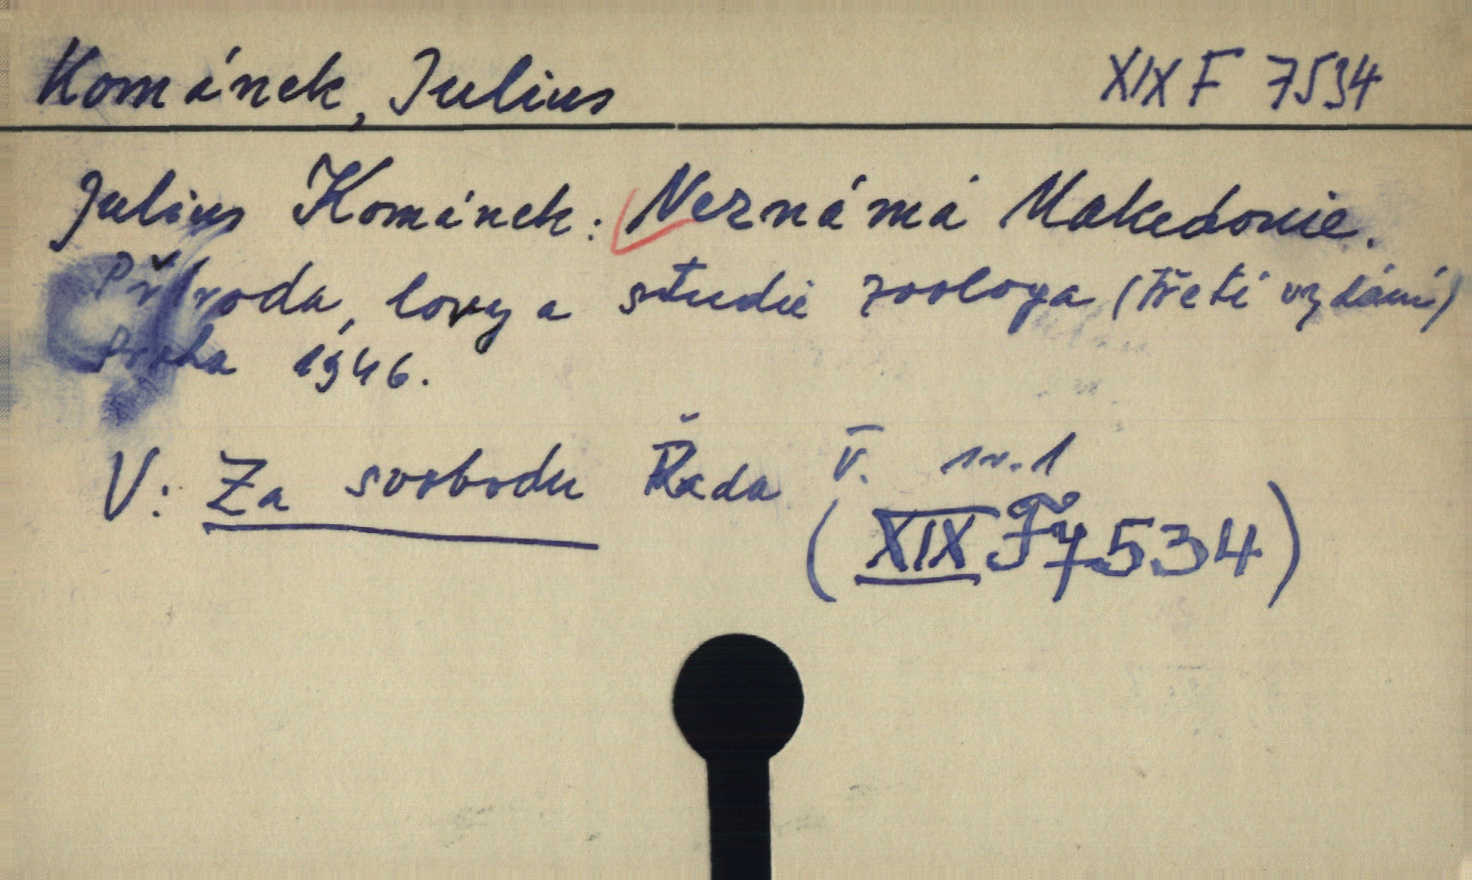 Kománek, Julius XIX F 7534
Julius Kománek: Neznámá Makedonie.
Příroda, lovy a studie zoologa (třetí vydání)
Praha 1946.
V: Za svobodu Řada V. sv. 1
(XIX F 7534)